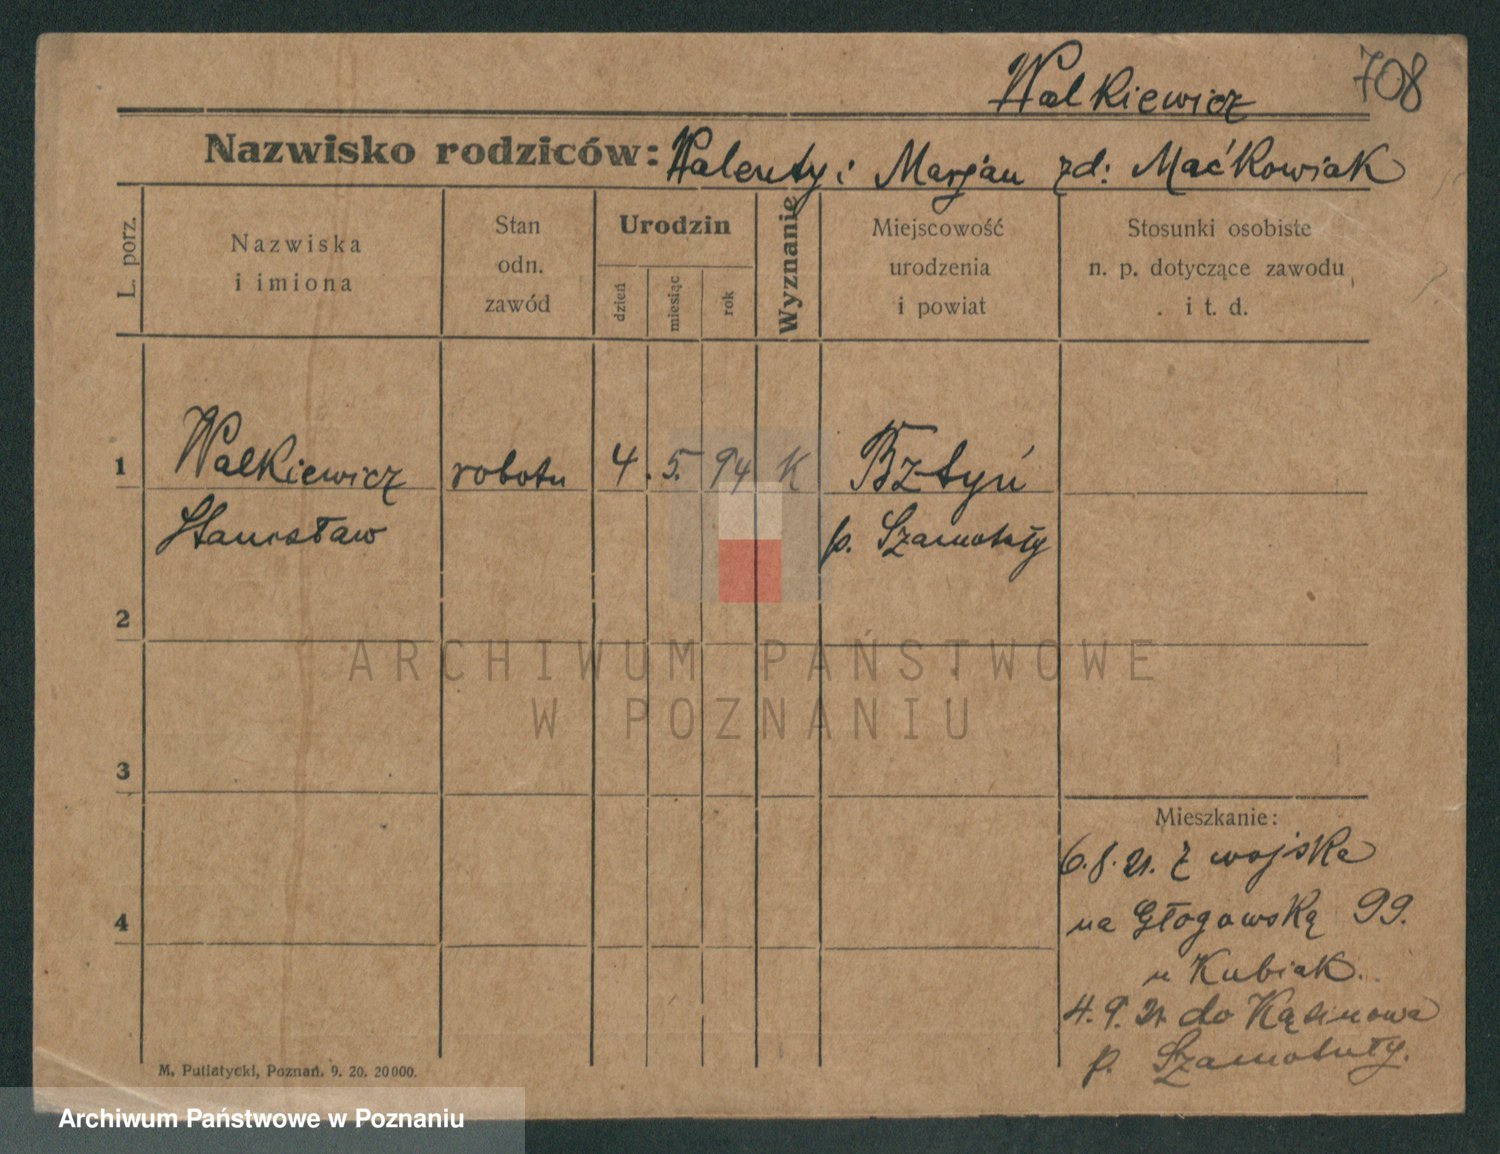 Walkiewicz 708
Nazwisko rodziców: Walenty i Marjan zd: Maćkowiak
L. porz.
Nazwiska
i imiona
Stan
odn.
zawód
Urodzin
dzień
miesiąc
rok
Wyznanie
Miejscowość
urodzenia
i powiat
Stosunki osobiste
n. p. dotyczące zawodu
i t. d.
1 Walkiewicz robotn 4. 5. 94 K Bztyń
Stanisław p. Szamotuły
2
ARCHIWUM PAŃSTWOWE
W POZNANIU
3
Mieszkanie:
6.8.21. z wojska
4 na Głogowską 99.
u Kubiak.
4.9.21 do Kąsinowa
p. Szamotuły.
M. Putiatycki, Poznań. 9. 20. 20000.
Archiwum Państwowe w Poznaniu